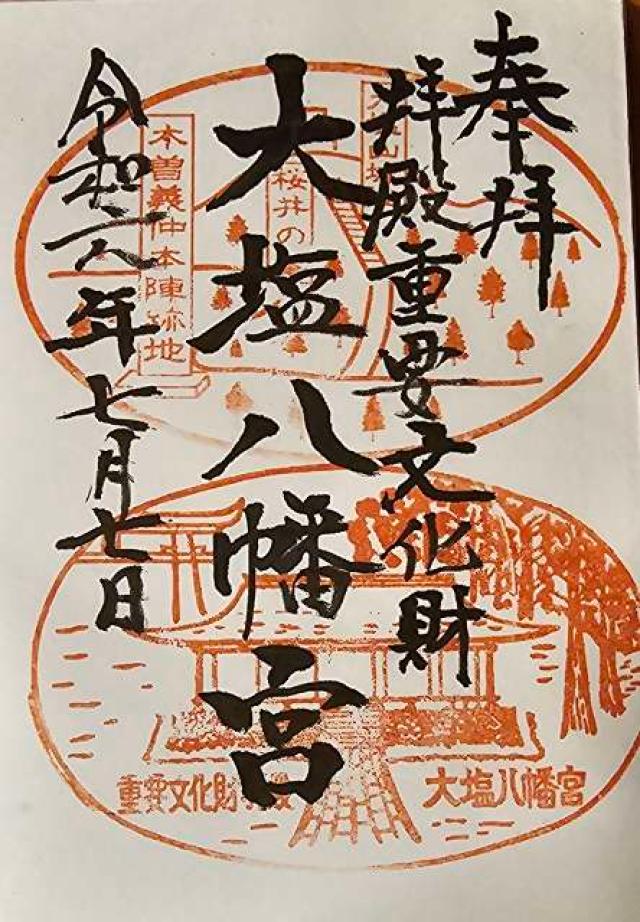 奉拝
拝殿重要文化財
大塩八幡宮
令和六年七月七日
桜井の
木曽義仲本陣跡地
重要文化財
大塩八幡宮